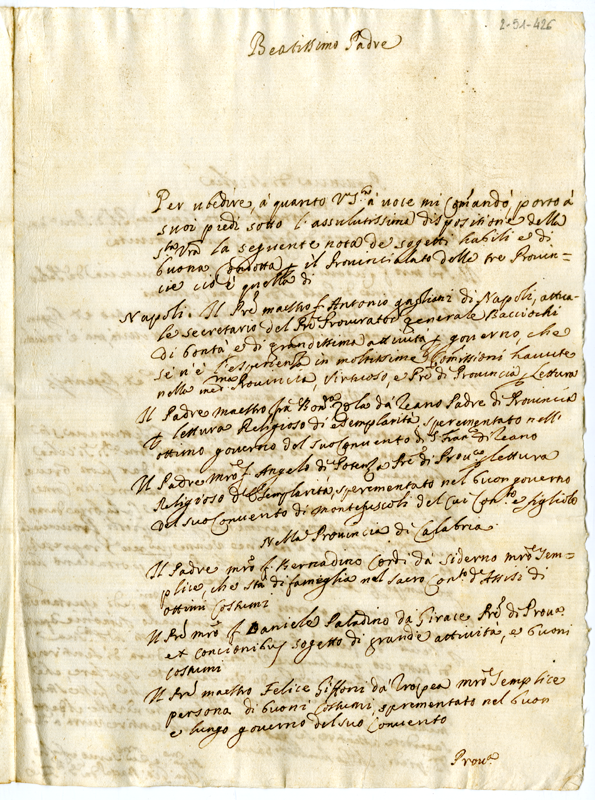 2-51-426
Beatissimo Padre
Per ubidire à quanto V. S.tà à voce mi com̃andò, porto à
suoi piedi sotto l'assolutissima dispositione della
S.tà Vrã la seguente nota de sogetti habili e di
buona condotta p il Provincialato delle tre Provin=
cie cio è quella di
Napoli. Il Prẽ maestro f. Antonio di Napoli, attua=
le secretario del Prẽ Procurator generale Baciochi
di bontà e di grandissima attività p governo, che
se n'è l'esperienza in moltissime Com̃issioni havute
nella med.ma Provincia, virtuoso, e Prẽ di Provincia p lettura
Il Padre maestro frà Bon.ra da Teano Padre di Provincia
p lettura Religioso di esemplarità, sprementato nell'
ottimo governo del suo Convento di S. Fran.co di Teano
Il Padre Mrõ f. Angelo di Potenza Prẽ di Prov.a p lettura
Religioso d'Esemplarità, sprementato nel buon governo
del suo Convento di Montefuscoli del cui Con.to è figliolo
Nella Provincia di Calabria
Il Padre mrõ f. Bernadino Cordi da Siderno mrõ sem=
plice, che stà di fameglia nel sacro Con.to d'Assisi di
ottimi costumi
Il Prẽ mrõ f. Daniele Paladino da Girace Prẽ di Prov.a
ex concionibus sogetto di grande attività, e buoni
costumi
Il Prẽ maestro Felice Giffoni da Tropea mrõ semplice
persona di buoni costumi sprementato nel buon
e lungo governo del suo Convento
Prov.a